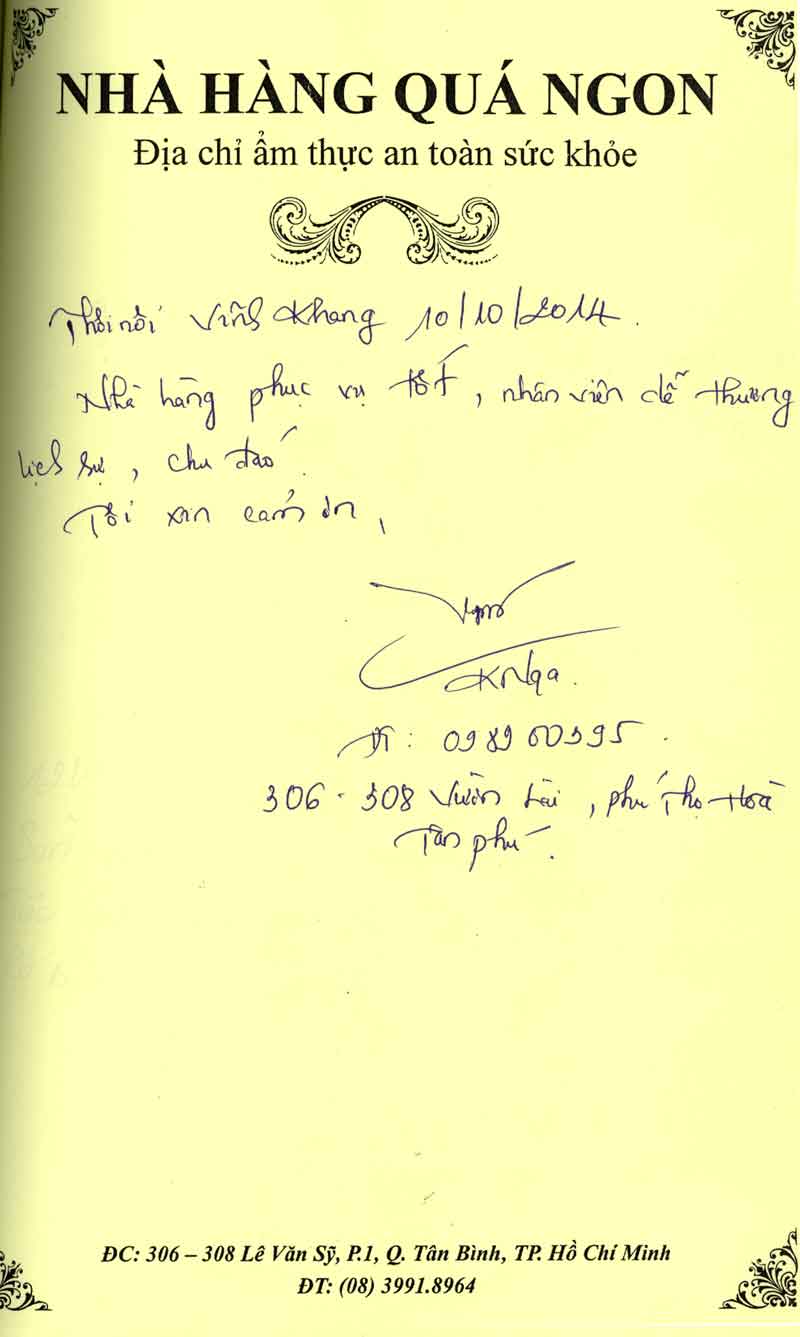 NHÀ HÀNG QUÁ NGON
Địa chỉ ẩm thực an toàn sức khỏe
Thôi nôi Vĩnh Khang 10/10/2014.
Nhà hàng phục vụ tốt, nhân viên dễ thương
lịch sự, chu đáo
Tôi xin cảm ơn,
K Nga.
ĐT: 0989 60395.
306 - 308 Vườn Lài, phú Thọ Hoà
Tân phú.
ĐC: 306 – 308 Lê Văn Sỹ, P.1, Q. Tân Bình, TP. Hồ Chí Minh
ĐT: (08) 3991.8964